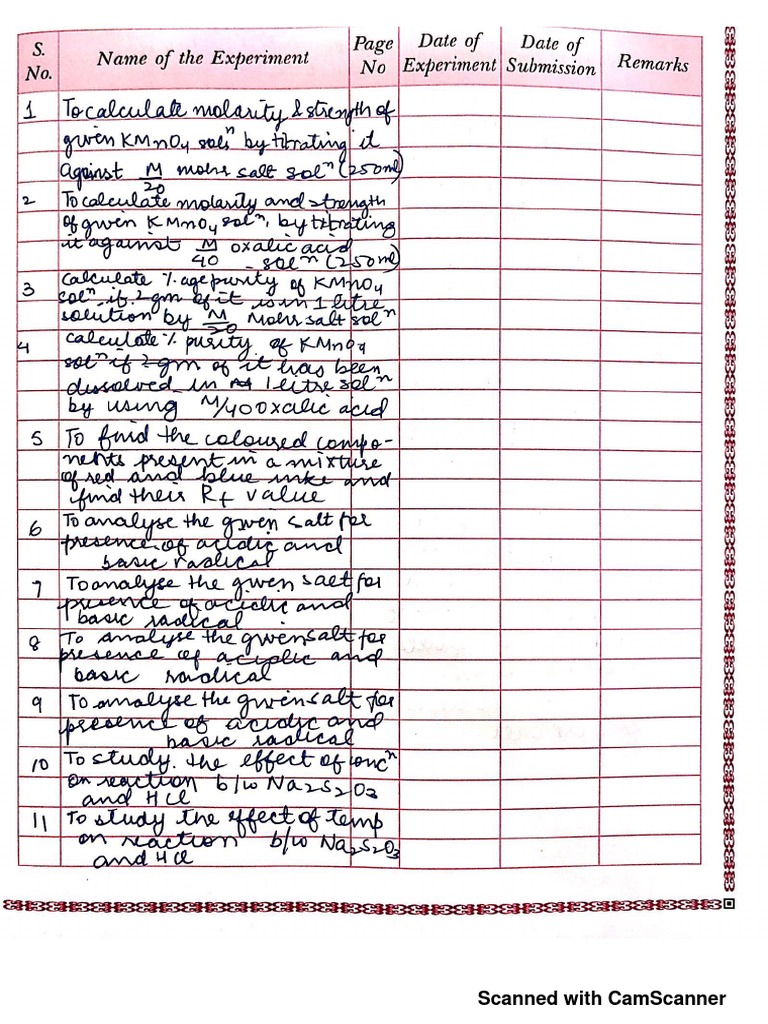 S. No. Name of the Experiment Page No Date of Experiment Date of Submission Remarks
1 To calculate molarity & strength of
given KMnO4 solⁿ by titrating it
against M/20 mohrs salt solⁿ (250ml)
2 To calculate molarity and strength
of given KMnO4 solⁿ, by titrating
it against M/40 oxalic acid
solⁿ (250ml)
3 Calculate %age purity of KMnO4
solⁿ if 2gm of it is in 1 litre
solution by M/20 Mohrs salt solⁿ
4 Calculate % purity of KMnO4
solⁿ if 2gm of it has been
dissolved in 1 litre solⁿ
by using M/40 oxalic acid
5 To find the coloured compo-
nents present in a mixture
of red and blue inks and
find their Rf value
6 To analyse the given salt for
presence of acidic and
basic radical
7 To analyse the given salt for
presence of acidic and
basic radical
8 To analyse the given salt for
presence of acidic and
basic radical
9 To analyse the given salt for
presence of acidic and
basic radical
10 To study the effect of concⁿ
on reaction b/w Na2S2O3
and HCl
11 To study the effect of temp
on reaction b/w Na2S2O3
and HCl
Scanned with CamScanner